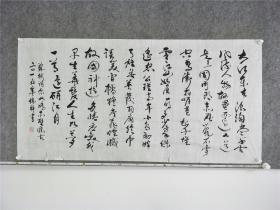 大江东去浪淘尽千古
风流人物故垒西边人道
是三国周郎赤壁乱石
穿空惊涛拍岸卷起千堆
雪江山如画一时多少豪杰
遥想公瑾当年小乔初嫁
了雄姿英发羽扇纶巾
谈笑间樯橹灰飞烟灭
故国神游多情应笑我
早生华发人生如梦
一尊还酹江月
苏轼词念奴娇赤壁怀古